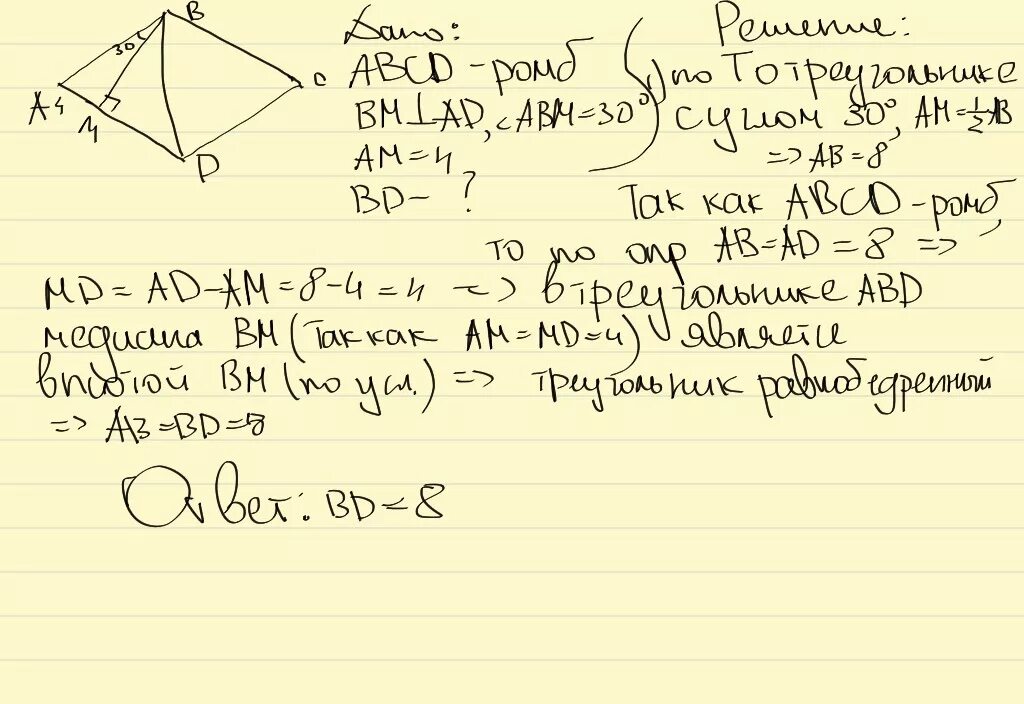 B
30°
A 4
M
D
C
Дано:
ABCD – ромб
BM⊥AD, <ABM=30°
AM=4
BD– ?
Решение:
1) по Т о треугольнике
с углом 30°, AM=1/2 AB
=> AB=8
Так как ABCD – ромб,
то по опр AB=AD=8 =>
MD= AD–AM=8–4=4 => в треугольнике ABD
медиана BM (так как AM=MD=4) является
высотой BM (по усл.) => треугольник равнобедренный
=> AB=BD=8
Ответ: BD=8